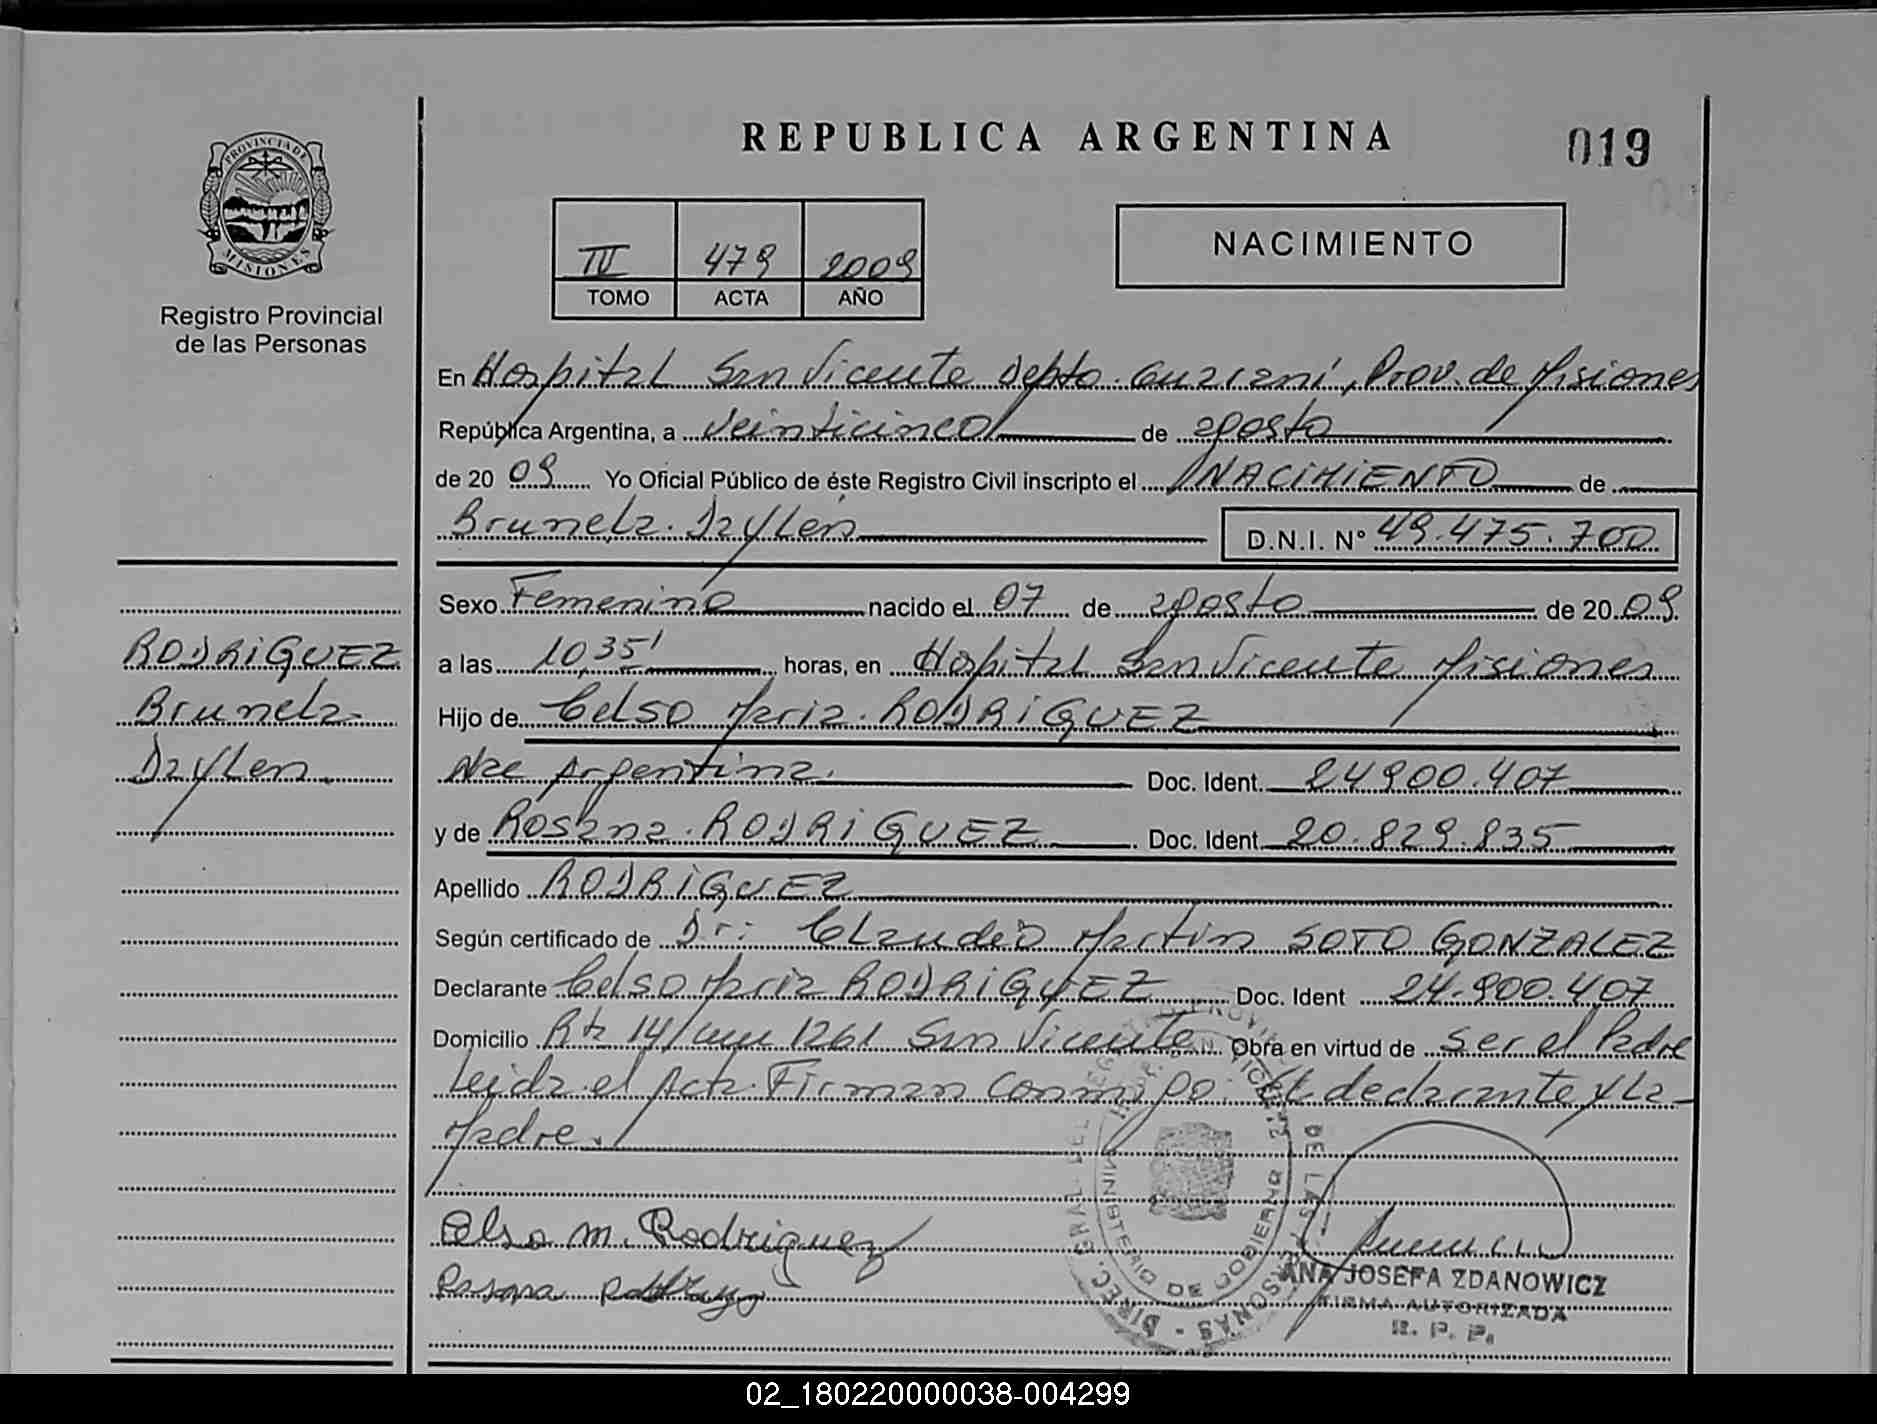 REPUBLICA ARGENTINA
019
PROVINCIA DE
MISIONES
Registro Provincial
de las Personas
III 479 2009
TOMO ACTA AÑO
NACIMIENTO
En Hospital San Vicente Depto. Guaraní, Prov. de Misiones
República Argentina, a veinticinco de agosto
de 20 09 Yo Oficial Público de éste Registro Civil inscripto el NACIMIENTO de
Brunela Daylen D.N.I. Nº 49.475.700
Sexo Femenino nacido el 07 de agosto de 20 09
a las 10,35' horas, en Hospital San Vicente Misiones
Hijo de Celso Maria RODRIGUEZ
Nac Argentina. Doc. Ident. 24900.407
y de Rosana RODRIGUEZ Doc. Ident. 20.829.835
Apellido RODRIGUEZ
Según certificado de Dr: Claudio Martin SOTO GONZALEZ
Declarante Celso Maria RODRIGUEZ Doc. Ident 24.900.407
Domicilio Rta 14 1261 San Vicente Obra en virtud de ser el Padre
Leida el Acta Firman Conmigo El declarante y La
Madre.
RODRIGUEZ
Brunela
Daylen
Celso M. Rodriguez
Rosana
MINISTERIO DE GOBIERNO
ANA JOSEFA ZDANOWICZ
FIRMA AUTORIZADA
R. P. P.
02_180220000038-004299